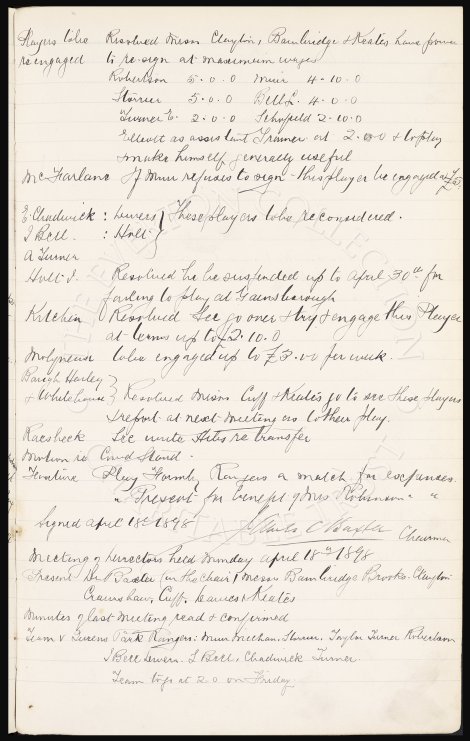 Players to be Resolved Messrs Clayton, Bainbridge & Keates have power
re engaged to re-sign at maximum wages
Robertson 5.0.0 Muir 4.10.0
Storrier 5.0.0 Bell L. 4.0.0
Turner E. 2.0.0 Schofield 2.10.0
Elliott as assistant Trainer at 2.0.0 & to play
& make himself generally useful
McFarlane If Muir refuses to sign this player be engaged at £3.
E. Chadwick : Divers } These players to be reconsidered.
J Bell : Holt }
A Turner
Holt J. Resolved he be suspended up to April 30th for
failing to play at Gainsborough
Kitchen Resolved Sec go over & try & engage this Player
at terms up to £2.10.0
Molyneux to be engaged up to £3.00 per week.
Barlow Hartley }
& Whitehouse } Resolved Messrs Cuff & Keates go to see these players
& report at next meeting as to their play.
Sec write re transfer
Motion re Cov'd Stand.
Fixture Play Rangers a match for expenses.
" Prescot for benefit of Mrs Robinson " "
Signed April 18th 1898 James C Baxter Chairman
Meeting of Directors held Monday April 18th 1898
Present Dr Baxter (in the chair) Messrs Bainbridge Brooks, Clayton
Crawshaw, Cuff, Davies & Keates
Minutes of last meeting read & confirmed
Team v Queens Park Rangers: Muir Meehan, Storrier, Taylor Turner Robertson
J Bell Divers. L Bell, Chadwick Turner.
Team to go at 2.0 on Friday.